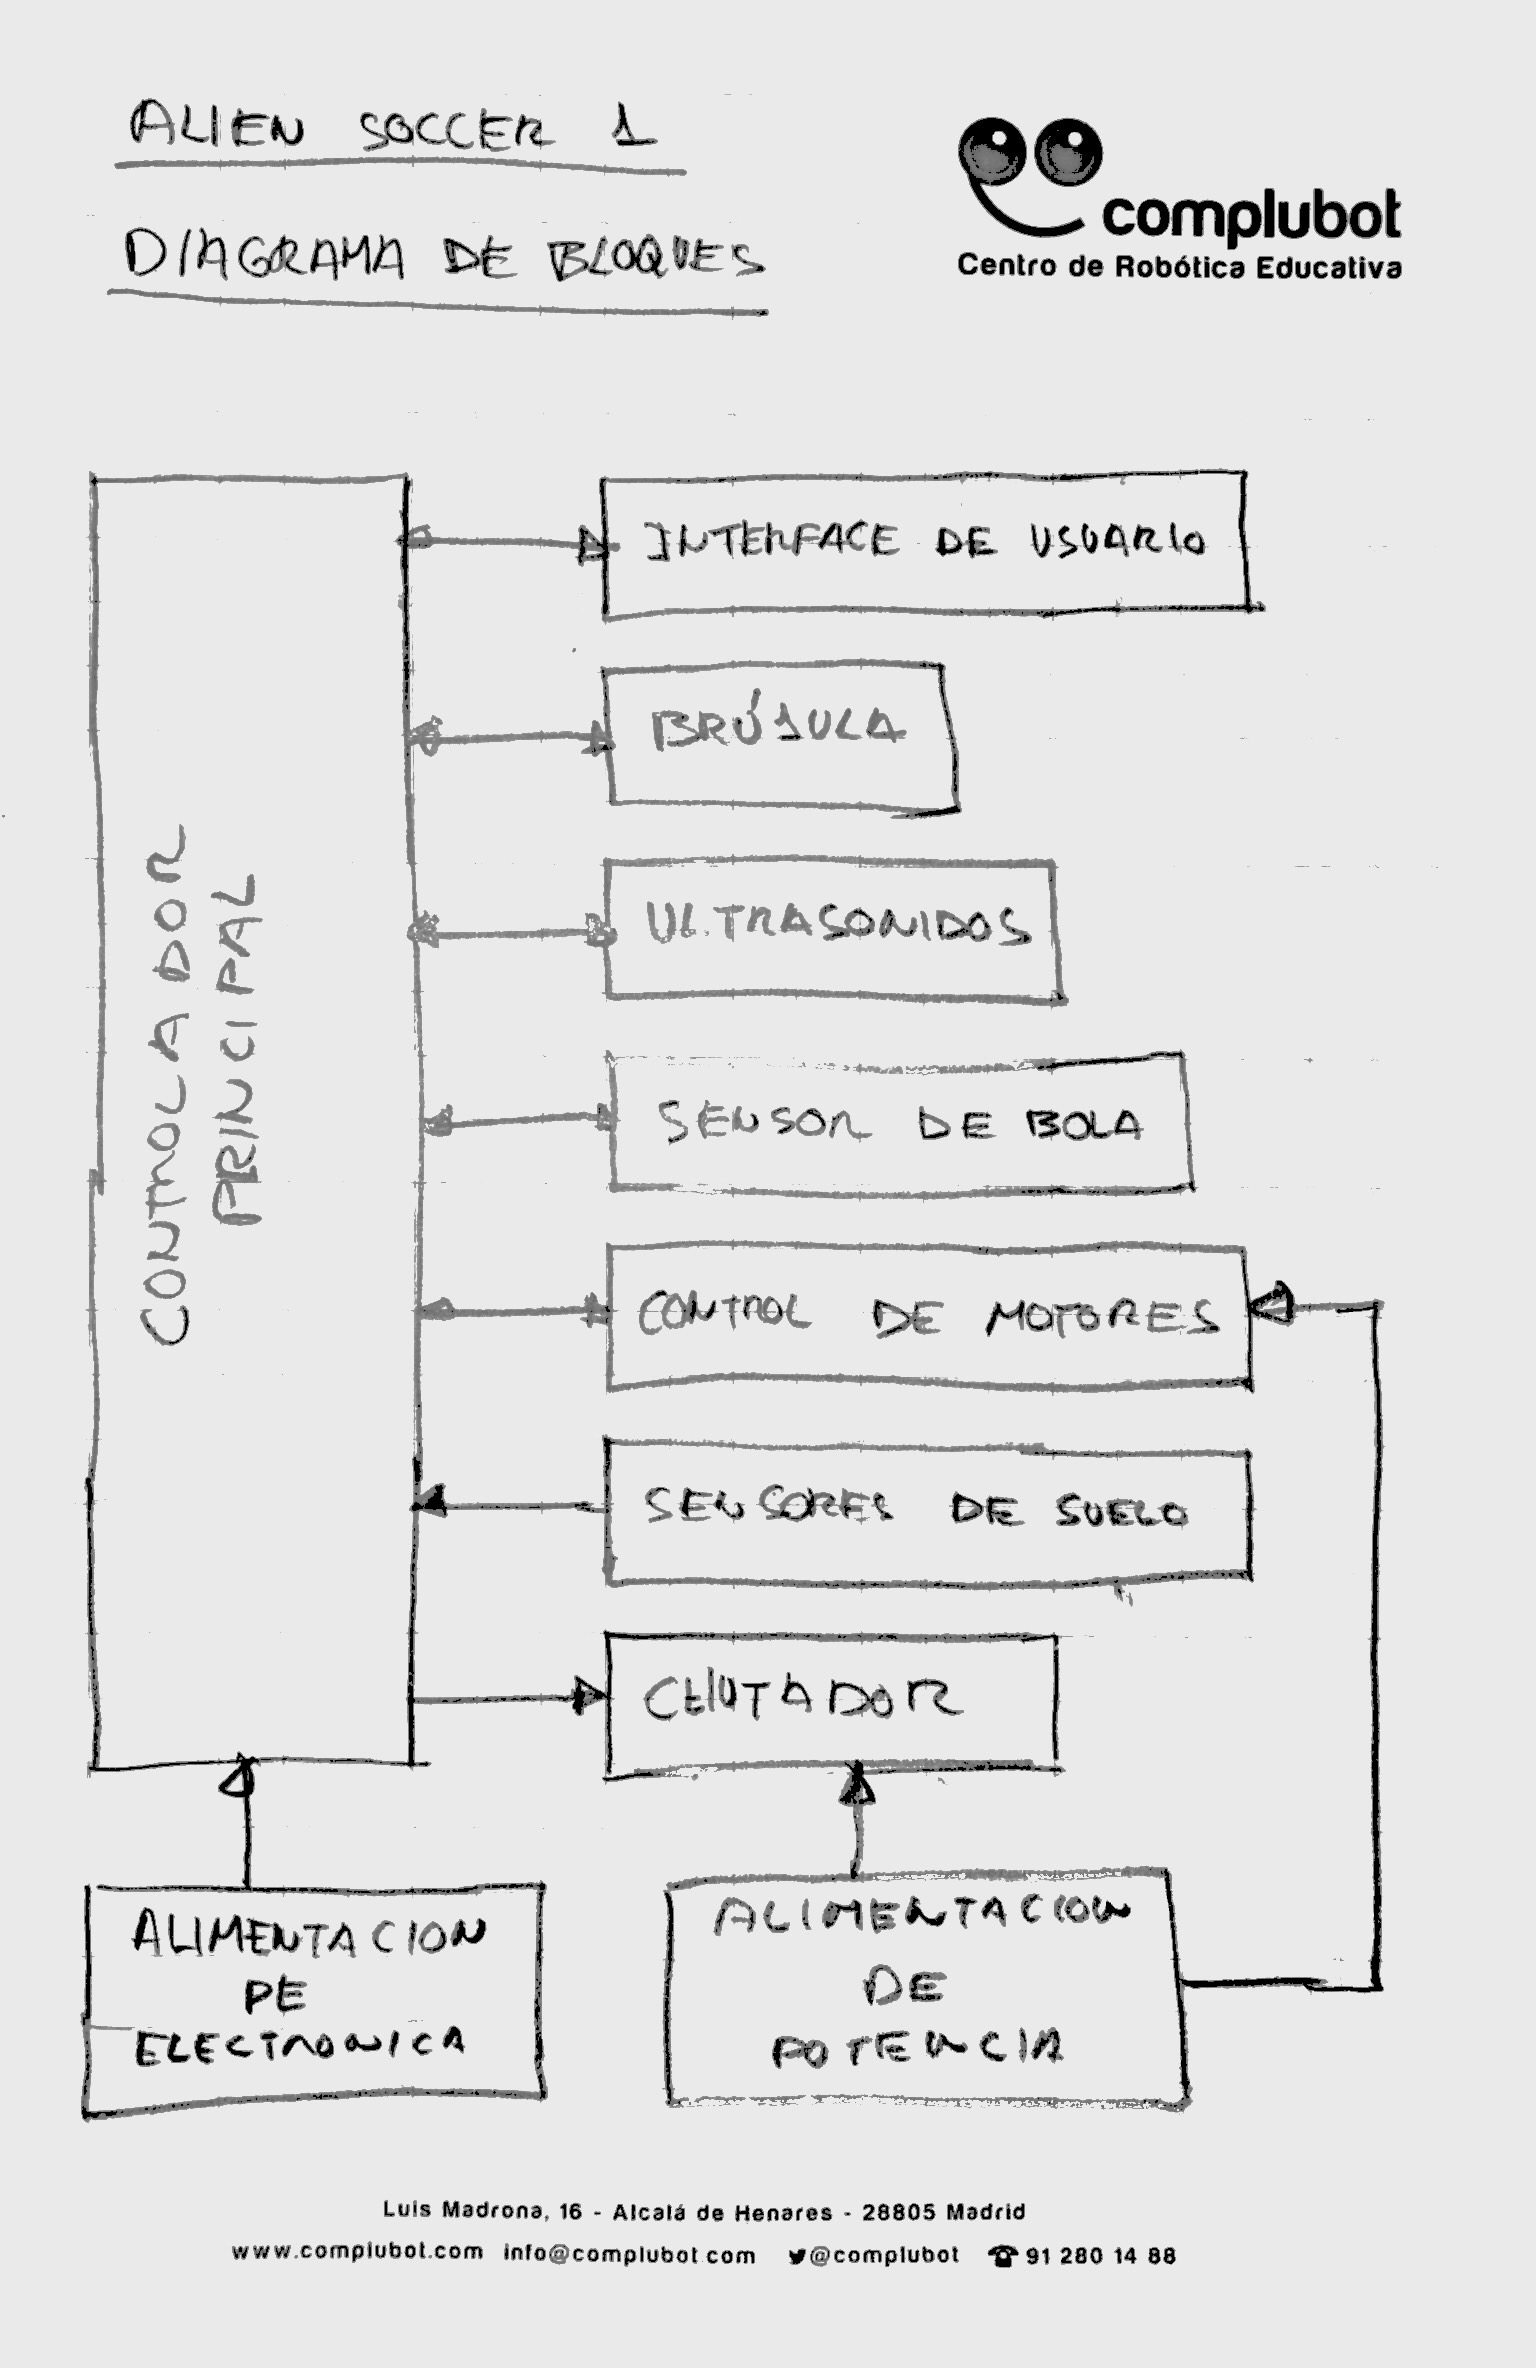 ALIEN SOCCER 1
DIAGRAMA DE BLOQUES
complubot
Centro de Robótica Educativa
CONTROLADOR
PRINCIPAL
INTERFACE DE USUARIO
BRÚJULA
ULTRASONIDOS
SENSOR DE BOLA
CONTROL DE MOTORES
SENSORES DE SUELO
CHUTADOR
ALIMENTACION
DE
ELECTRONICA
ALIMENTACION
DE
POTENCIA
Luis Madrona, 16 - Alcalá de Henares - 28805 Madrid
www.complubot.com info@complubot.com @complubot 91 280 14 88